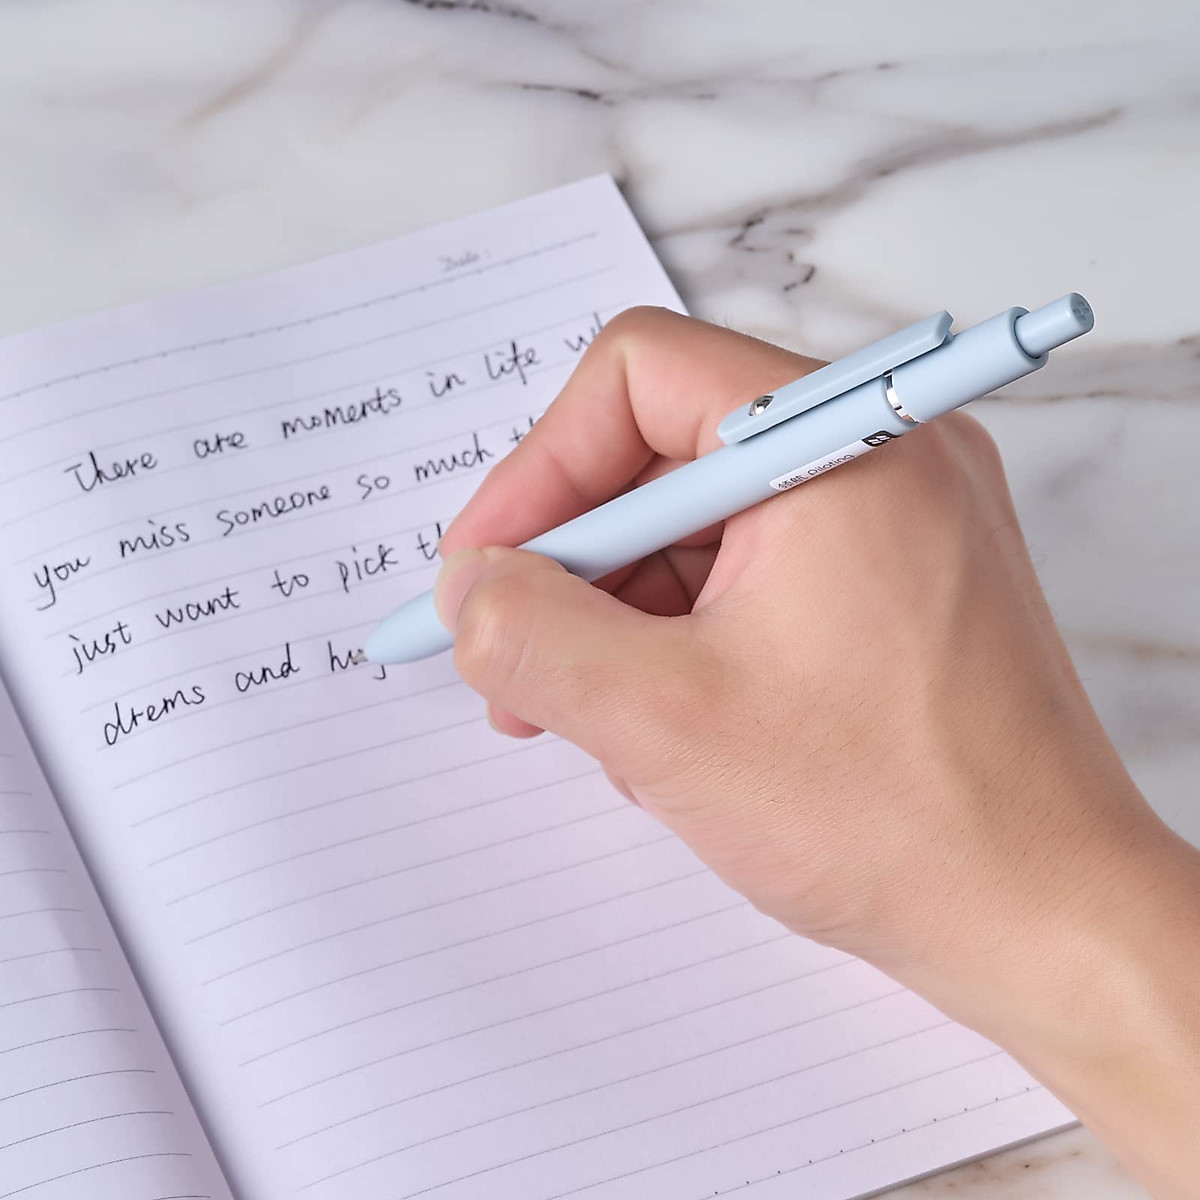 Date:
There are moments in life wh
you miss someone so much th
just want to pick th
drems and hug
领航 Piloting